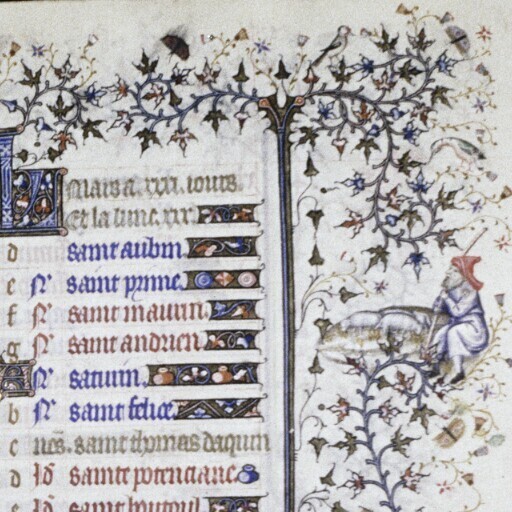 Mars a .xxxi. iours
Et la lune .xxx.
d saint aubin
e N saint prime
f N saint maurin
g N saint andrien
A N saturin
b N saint felice
c nõs. saint thomas daquin
d Id sainte potenciane
e Id saint